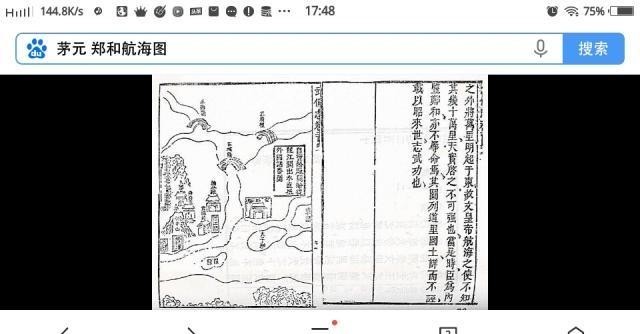 144.8K/s
17:48
75%
du
茅元 郑和航海图
搜索
之外將萬里明起于東故文皇帝航海之使不知
其幾十萬里天實啓之不可強也當是時臣為內
豎鄭和亦不辱命焉其圖列道里國土詳而不誣
載以昭來世志武功也
自寶船廠開船從
龍江關出水直抵
外國諸番圖